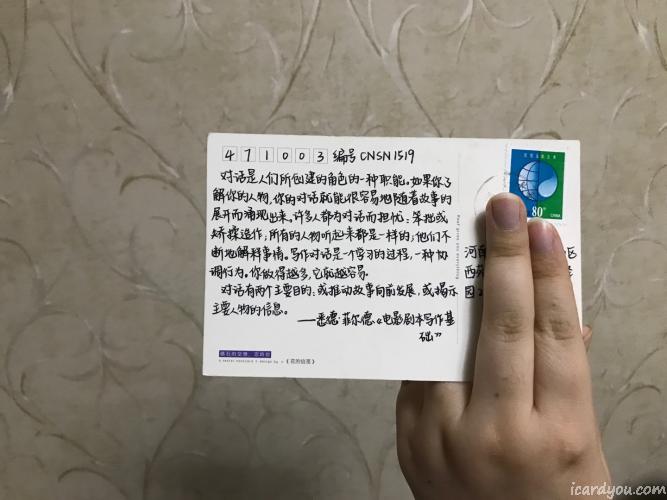 471003 编号 CNSN1519
对话是人们所创建的角色的一种职能。如果你了
解你的人物,你的对话就能很容易地随着故事的
展开而涌现出来。许多人都为对话而担忧:笨拙或
矫揉造作,所有的人物听起来都是一样的;他们不
断地解释事情。写作对话是一个学习的过程,一种协
调行为。你做得越多,它就越容易。
对话有两个主要目的,或推动故事向前发展,或揭示
主要人物的信息。
——悉德·菲尔德《电影剧本写作基
础》
80
CHINA
河南
区
西
园
《花的信笺》
icardyou.com